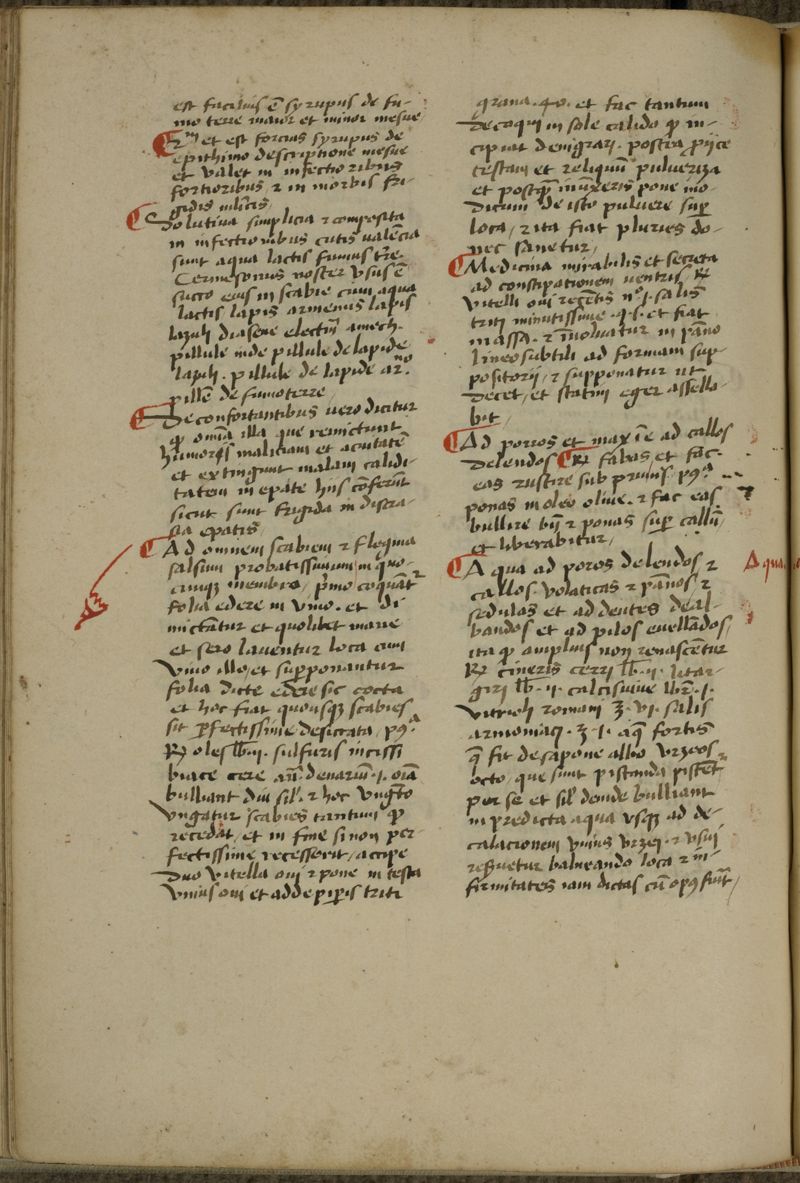 est facilius e syrupus de fu-
mo terre maior et minor mesue
et est forcius syrupus de
epithimo descriptione mesue
et valet in infectionibus
fortioribus ⁊ in morbis fri-
gidis
Solutiva simplicia ⁊ composita
in infectionibus cutis valēcia
sunt aqua lactis fumus tre
Cermesonus noster vsus ē
succo eius in scabie cum aqua
lactis lapis armenus lapis
lazuli diasene electm amech
pillule inde pillule de lapide
lazuli. pillule de lapide ar.no
pille de fumoterre
De confortantibus vero dicitur
q omīa illa que remictunt
humoris maliciam et acuitatē
et extingunt malam calidi-
tatem in epate hiis cōferūt
sicut sunt frigida in discra-
sia epatis
Ad omnem scabiem ⁊ flegma
salsum probatissimum in quo-
cunqꝫ membro, pmo coquāt
folia edere in vino. et di
mictātur et quolibet mane
et sero laventur loca cum
vino illo, et supponantur
folia dicte edere sic cocta
et hoc fiat quousqꝫ scabies
sit pfectissime desiccata, pꝰ
℞ olei lb. ii. sulfuris
cere an denariū .i. oīa
bulliant diu sil. ⁊ hoc vngēto
vngatur scabies tantum q
recedat, et in fine si non per-
fectissime recesserit, accipe
duo vitella oui ⁊ pone in testa
vnius oui et adde pipis triti
grana .40. et fac tantum
decoqui in sole calido q in-
cipiat denigrari. postea pijce
testam et reliquū pulueriza
et postq̄ inūxeris pone mo-
dicum de isto puluere sup
loca, ⁊ ita fiat pluries do-
nec sanetur,
Medicina mirabilis et secreta
ad constipationem ventris ℞
vitelli oui recētis nº .i. salis
triti minutissime .q. s. et fiat
massa. ⁊ īuoluatur in pāno
lineo subtili ad formam sup-
positorij, ⁊ supponatur ut
decet, et statim eger assella-
bit,
Ad porros et maxīe ad callos
delendos ℞ fabas et fac
eas sub prunis pꝰ
ponas in oleo oliue. ⁊ fac eas
bullire bn̄ ⁊ ponas sup callū,
et liberabitur,
Aqua ad poros delendos ⁊
callos. volaticas ⁊ pānos ⁊
sedulas et ad dentes deal-
bandos et ad pilos euellādos,
ita q amplius non renascētur
℞ cineris cerri lb. ii. litar-
giri lb. ii. calcis viue lbr̄. i.
vitrioli romani ℥. vi. salis
armoniaci .℥. i. aq̄ fortis
q̄ fit de sapone albo vrzeos
octo, que sunt pistanda pistēt
per se et sil deinde bulliant
in predicta aqua vsqꝫ ad de-
calacionem vnius vrzei. ⁊ vsui
reseruetur balneando loca ⁊ in-
firmitates iam dictas cū opꝰ fuūt,
Aqua